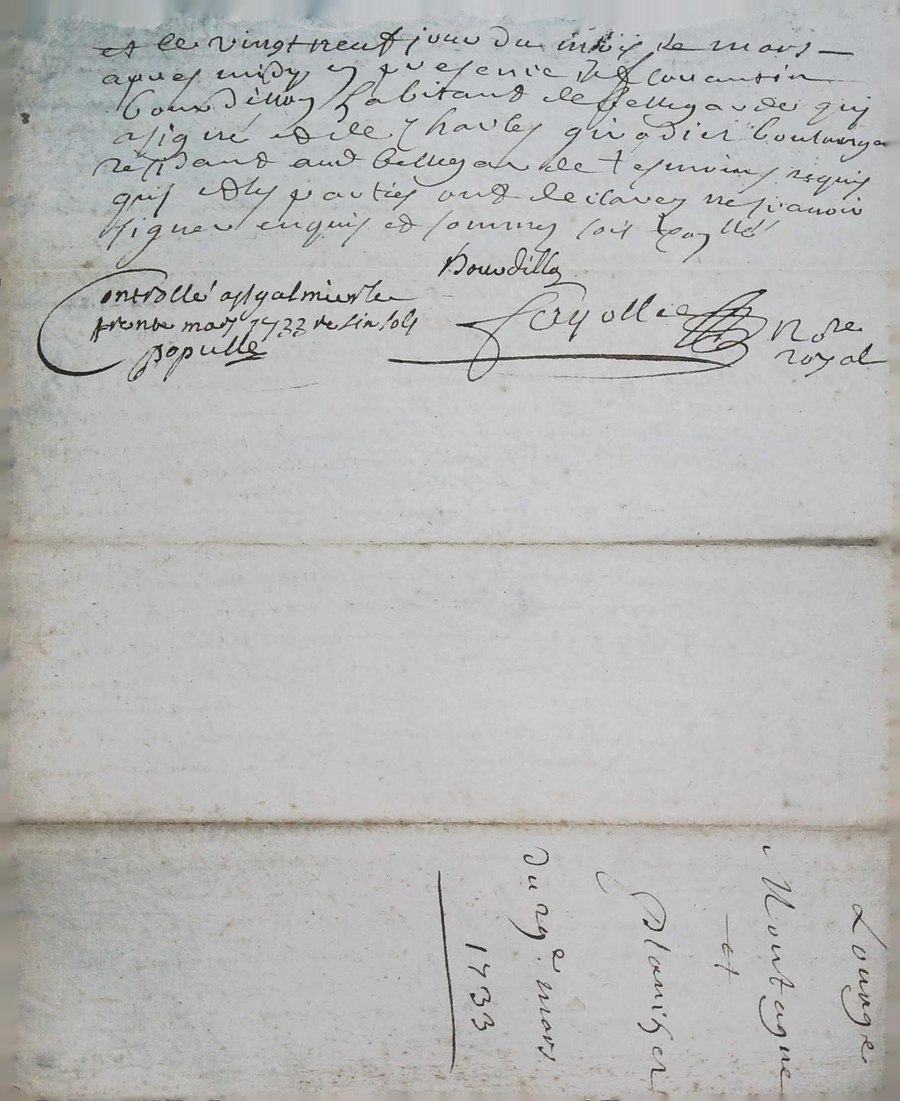 et le vingt neuf jour du mois de mars
apres midy en presence de
bourdillon habitant de bellegarde qui
a signé et de Charles boulanger
residant aud bellegarde tesmoins requis
qui et les parties ont declarez ne scavoir
signer enquis et sommes soit
Bourdillon
Controllé a st galmier le
trente mars 1733 reç six sols
populle
fayolle Nore
royal
Louage
Montagne
et
Planiher
du 29e. mars
1733